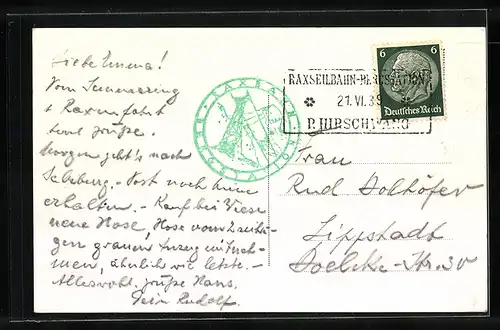 Liebe Emma!
Vom Semmering
u. Raxenfahrt
Grüße.
Morgen geht's nach
Salzburg. - Post noch keine
erhalten. - Kauf bei Wiese
neue Hose, Hose vom
grauen Anzug mitneh-
men, ähnlich wie letzte. -
Alles wohl. Grüße Hans.
Dein Rudolf.
RAXBAHN
6 6
Deutsches Reich
RAXSEILBAHN-BERGSTATION
21.VI.39
P. HIRSCHWANG
Frau
Rud Dolhöfer
Lippstadt
Boelcke-Str. 30